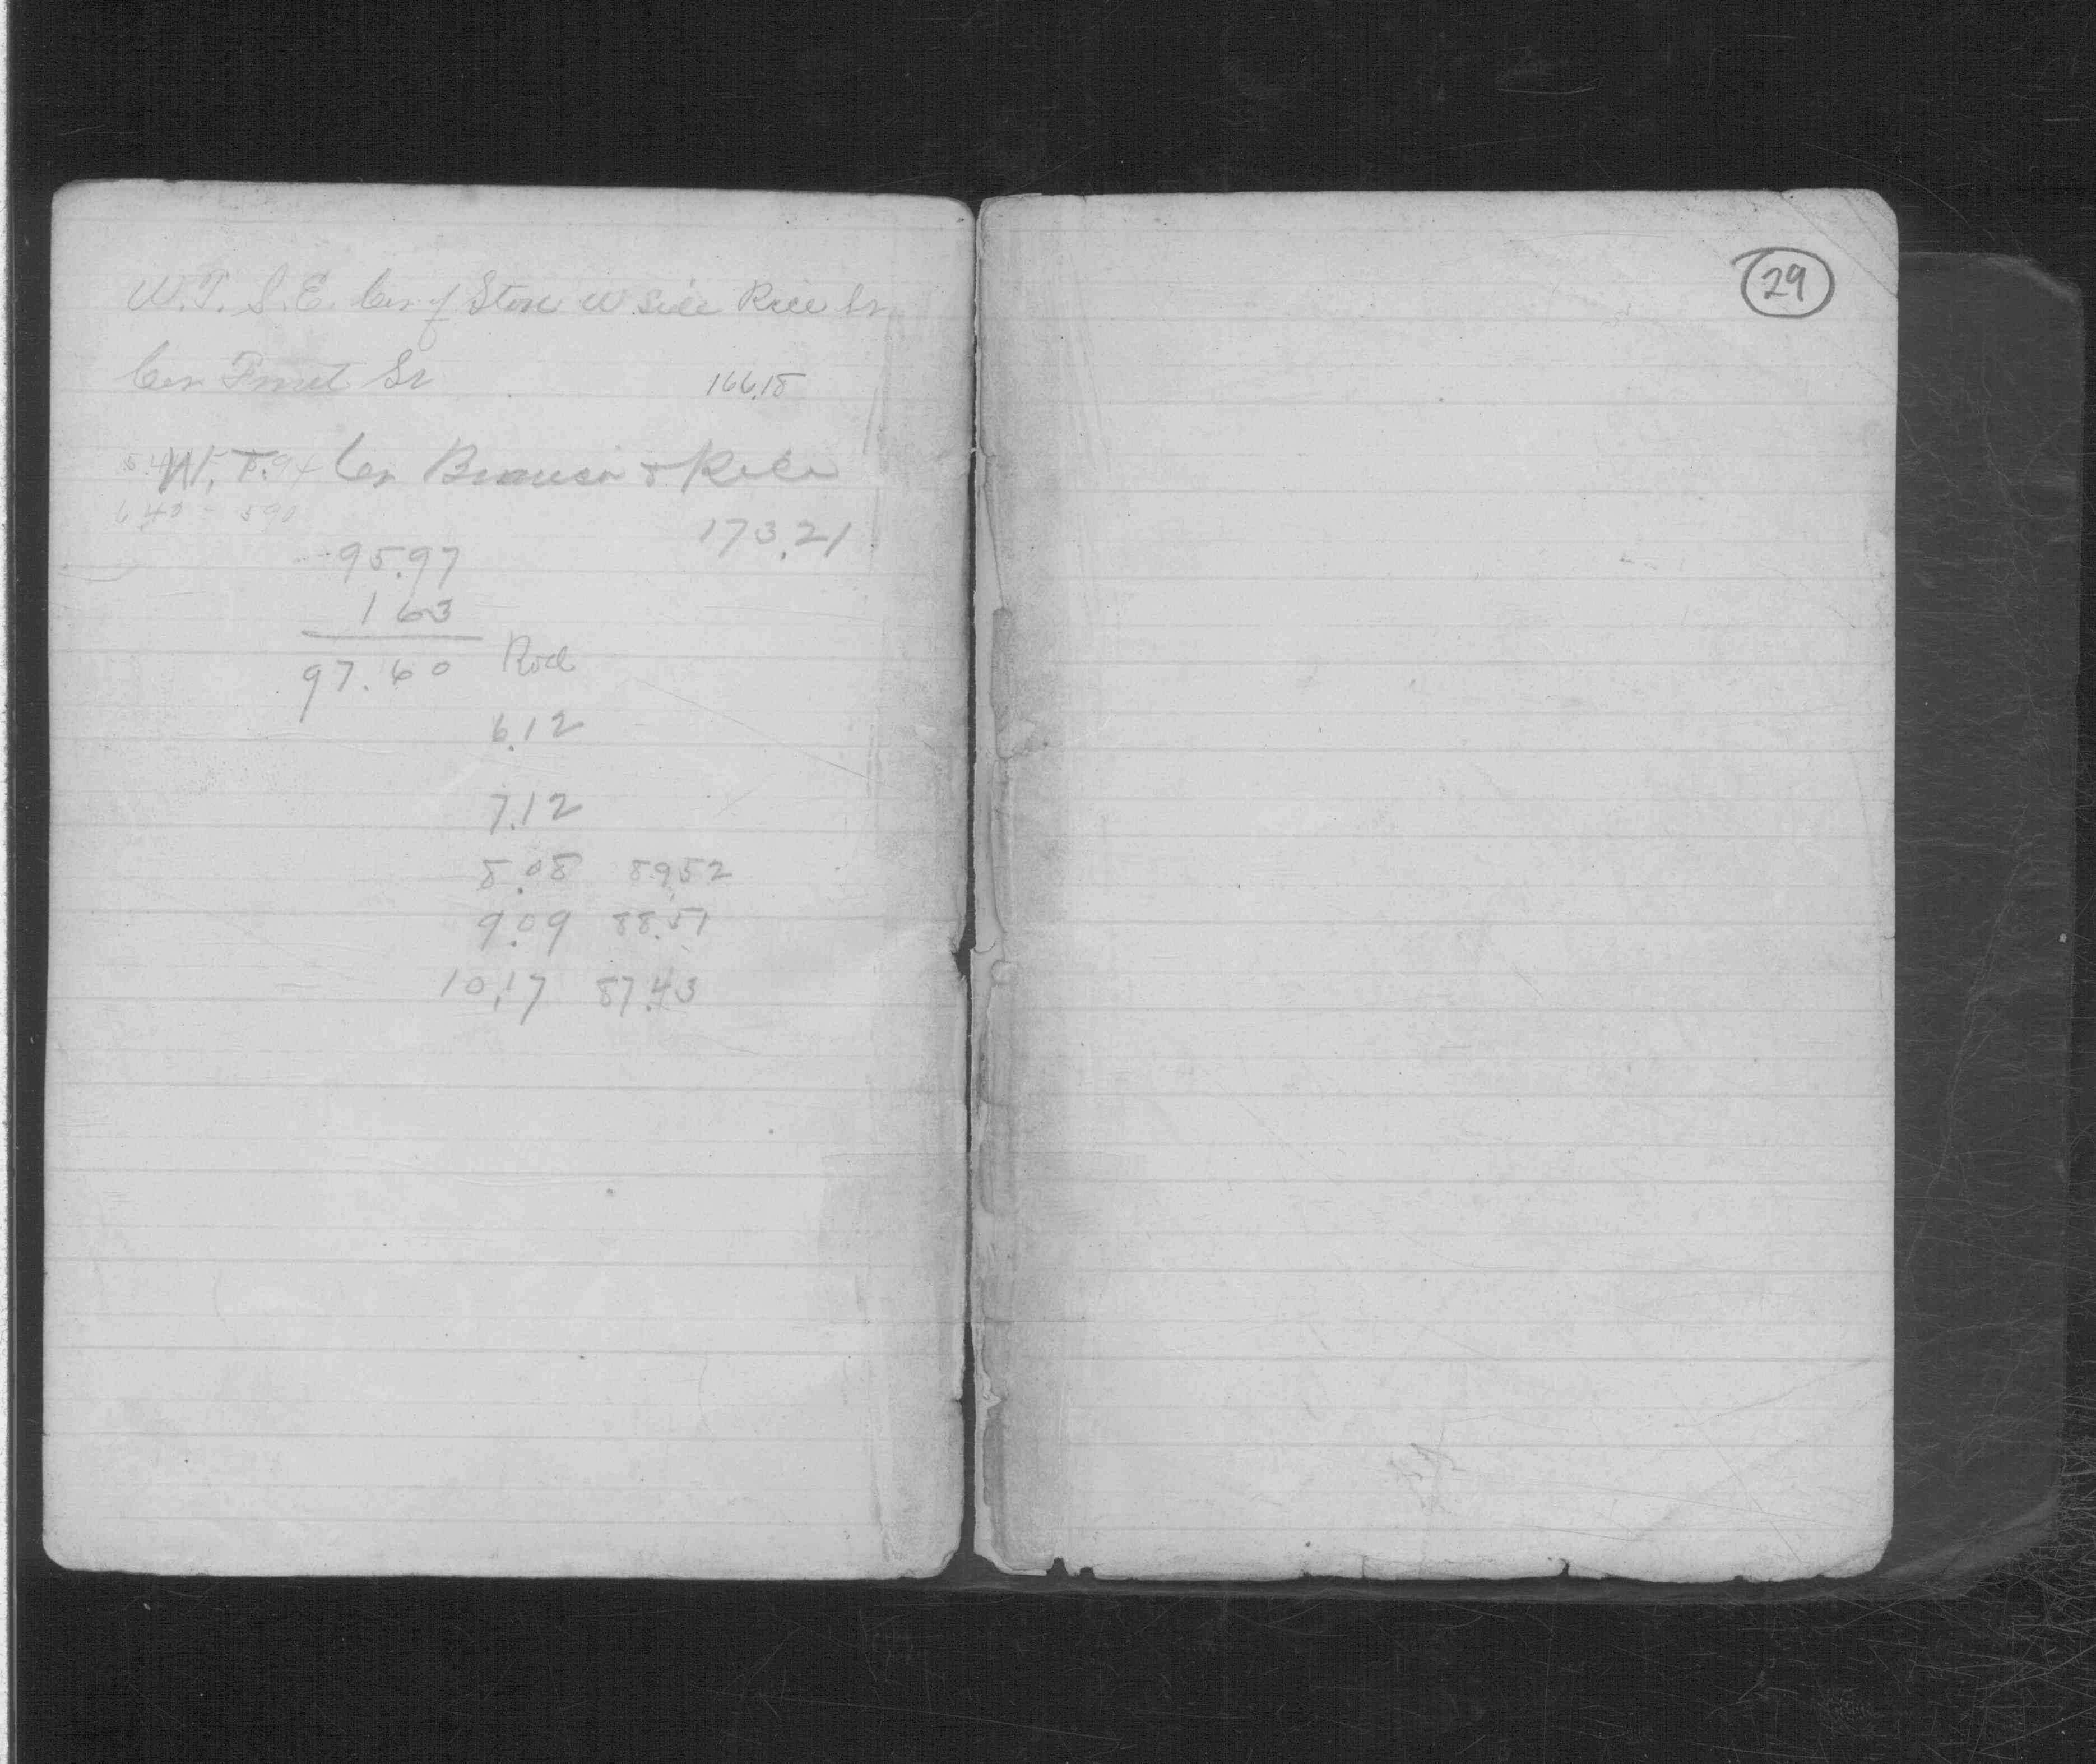 W.T. S.E. Cor of Store W. Side Rice St
Cor Front St 166.18
W.T. Cor & Rice
640 - 590
173.21
95.97
1 63
97.60 Rod
6.12
7.12
8.08 89.52
9.09 88.51
10.17 87.43
29